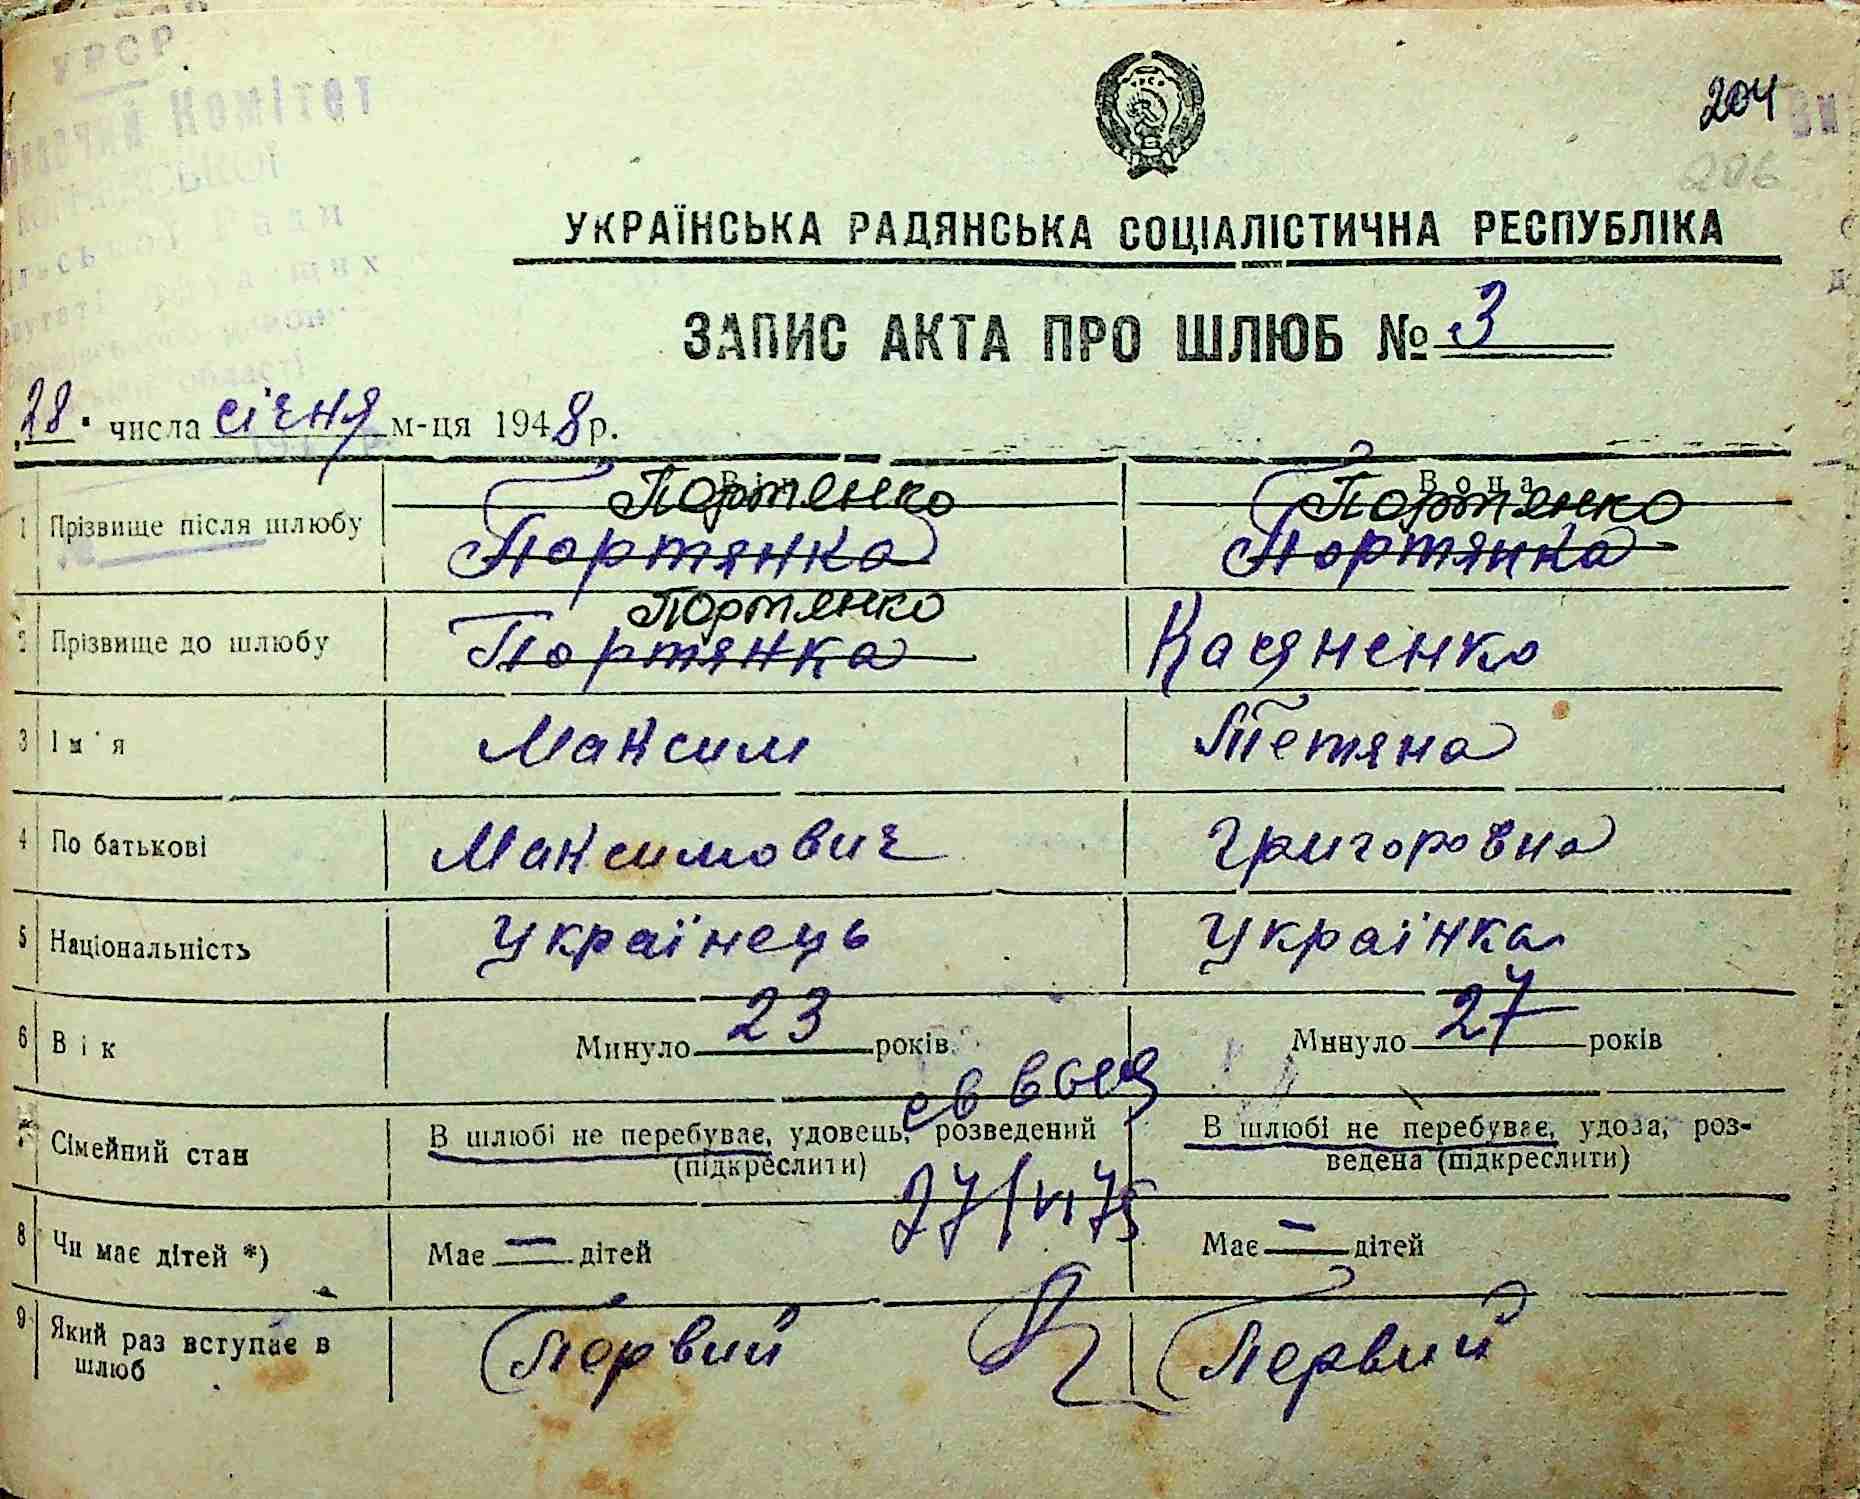 УРСР
Комітет
204
206
УКРАЇНСЬКА РАДЯНСЬКА СОЦІАЛІСТИЧНА РЕСПУБЛІКА
ЗАПИС АКТА ПРО ШЛЮБ № 3
28 числа січня м-ця 1948 р.
Він Вона
Портянко Портянко
1 Прізвище після шлюбу Портянка Портянка
Портянко
2 Прізвище до шлюбу Портянка Касяненко
3 Ім'я Максим Тетяна
4 По батькові Максимович Григоровна
5 Національність Українець Украінка
6 Вік Минуло 23 років Минуло 27 років
7 Сімейний стан В шлюбі не перебуває, удовець, розведений (підкреслити) В шлюбі не перебуває, удова, роз-
ведена (підкреслити)
27/VI 75
8 Чи має дітей *) Має — дітей Має — дітей
9 Який раз вступає в Первий Первий
шлюб